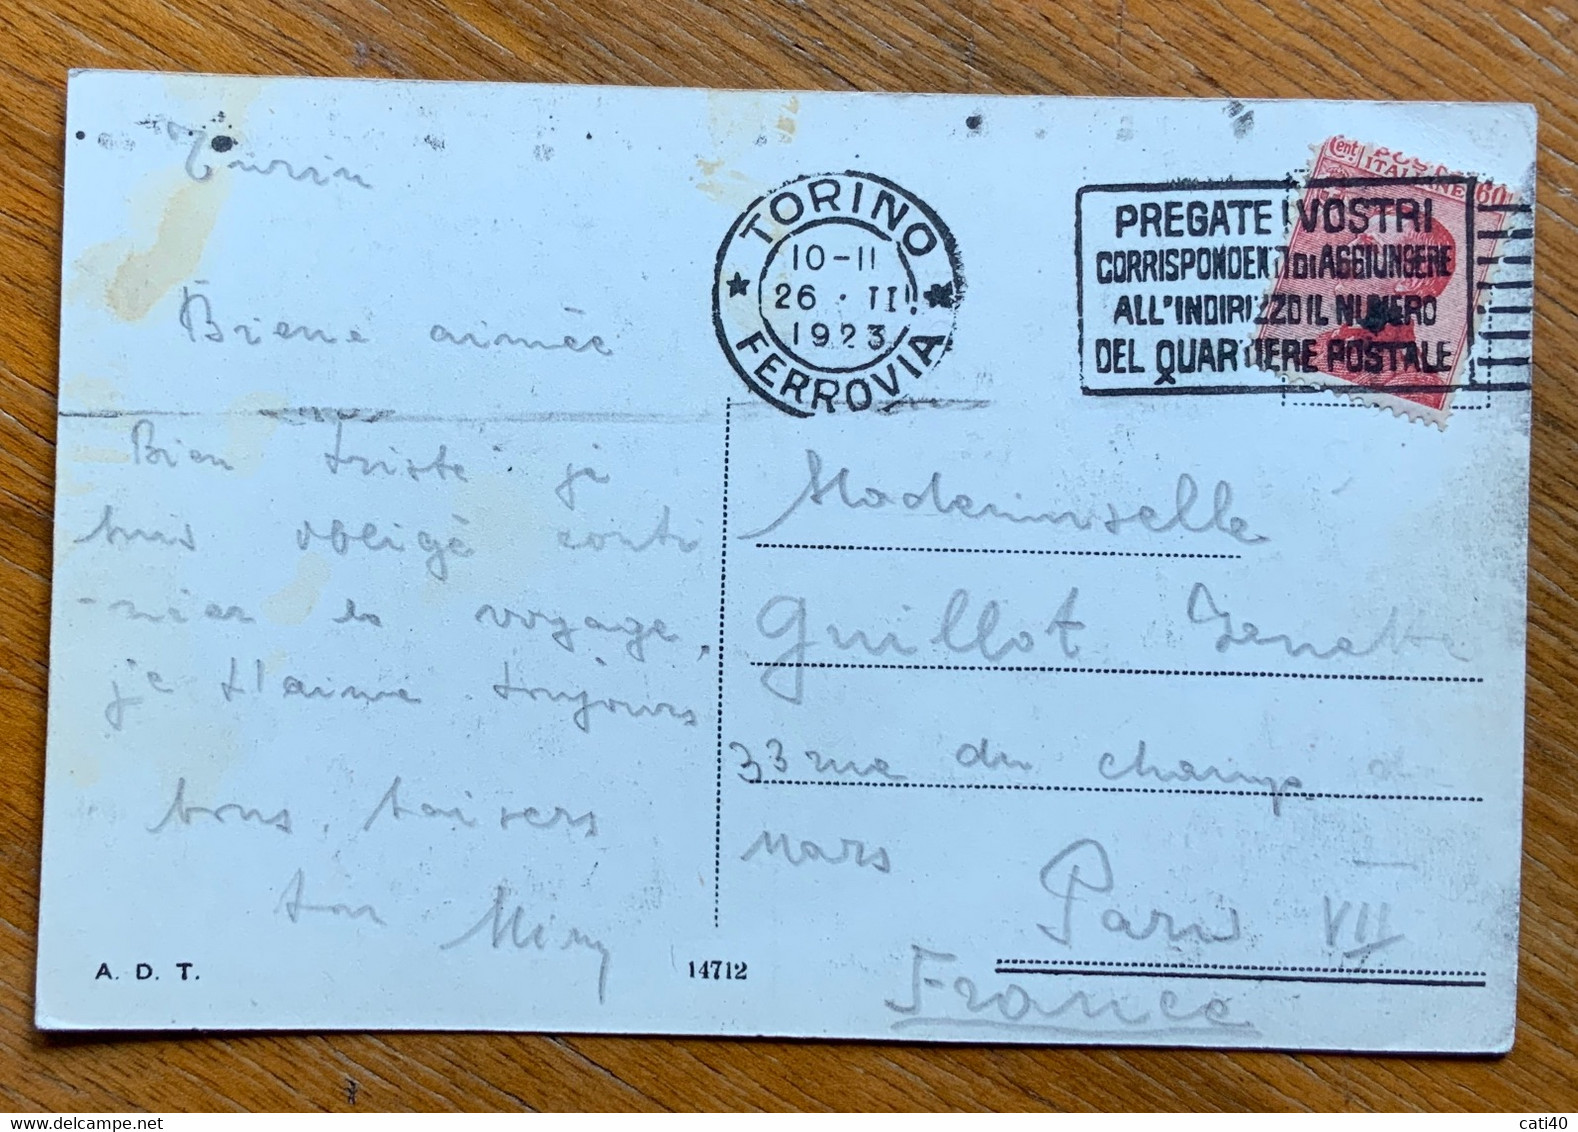 Turin
Biene aimée
Bien triste je
suis obligé conti
-nier le voyage,
je t'aime toujours
bons baisers
ton
A. D. T.
14712
TORINO
10-11
26 · II
1923
FERROVIA
PREGATE I VOSTRI
CORRISPONDENTI DI AGGIUNGERE
ALL'INDIRIZZO IL NUMERO
DEL QUARTIERE POSTALE
Cent. POSTE 60
ITALIANE
Mademoiselle
Guillot Genette
33 rue du champ de
mars
Paris VII
France
www.delcampe.net
cati40